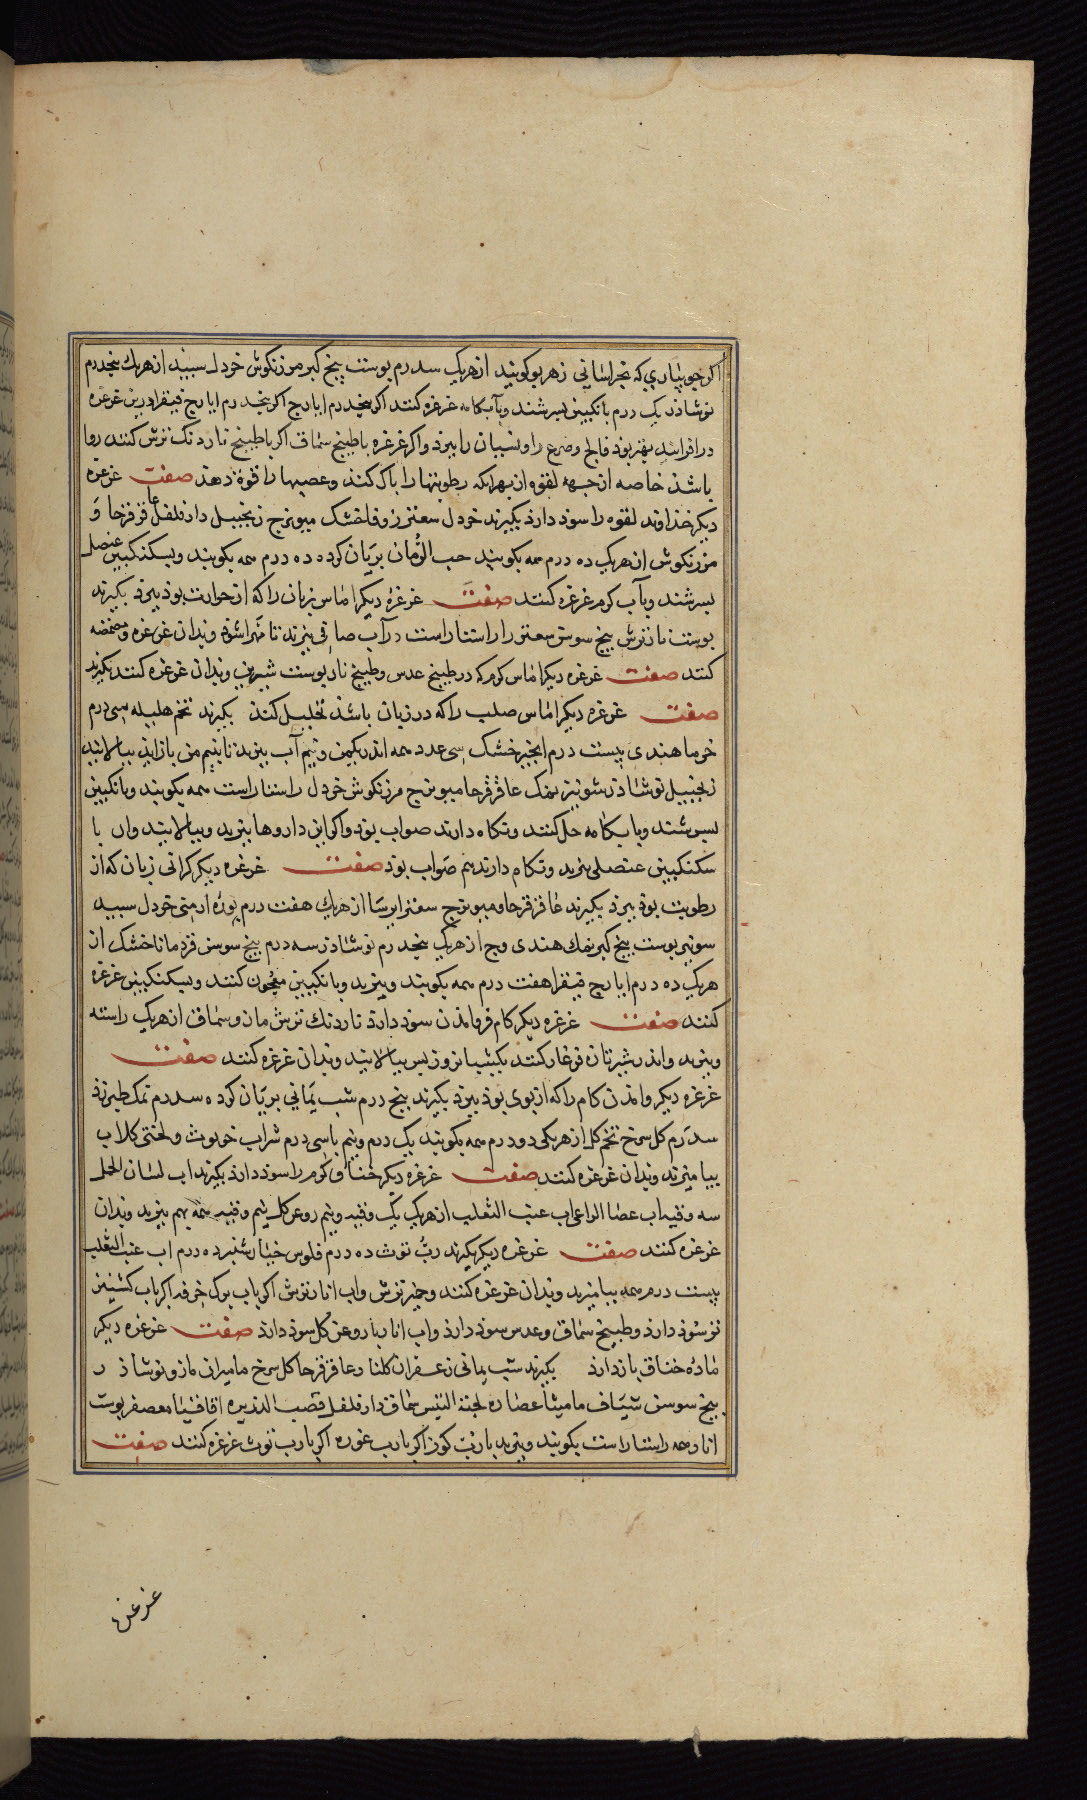 اکر جو پیاری که بخراسانی زهر بو کویند از هریک سدرم پوست بیخ کبر مرزنکوش خردل سپید از هریک پنجدرم
نوشاذر یک درم بانکبین بسرشند وبآب کامه غرغره کنند اکر پنجدرم ایارج اکر پنجدرم ایارج فیقرا درین غرغره
درافزایند بهتر بوذ فالج وصرع را ونسیان را ببرذ واکر غرغره باطبیخ سماق اکر باطبیخ ناردنک ترش کنند روا
باشذ خاصه ازجهة لقوه ازبهر انکه رطوبتها را باک کند وعصبها را قوة دهذ صفت غرغره
دیکر خذاوند لقوه را سوذ دارذ بکیرند خردل سعتر زوفا خشک میویزج زنجبیل دارفلفل عاقرقرحا و
مرزنکوش از هریک ده درم همه بکوبند حب الرّمان بریان کرده ده درم همه بکوبند وبسکنکبین عنصلی
بسرشند وبآب کرم غرغره کنند صفت غرغرهٔ دیکر اماس زبان را که از حرارت بوذ ببرذ بکیرند
پوست نار ترش بیخ سوسن سعتر راستاراست درآب صافی بپزند تا مهرا شوذ وبدان غرغره ومضمضه
کنند صفت غرغره دیکر اماس کرم که در طبیخ عدس وطبیخ نار پوست شیرین وبدان غرغره کنند بکیرند
صفت غرغره دیکر اماس صلب را که در زبان باشذ تحلیل کند بکیرند تخم هلیله سی درم
خرما هندی بیست درم انجیر خشک سی عدد همه اندر یکمن ونیم آب بپزند تا بنیم من بازاید بپالایند
زنجبیل نوشاذر شونیز نمک عاقرقرحا میویزج مرزنکوش خردل راستاراست همه بکوبند وبانکبین
بسرشند وبابکامه حل کنند وبکام دارند صواب بوذ واکر این داروها بپزند وبپالایند وان با
سکنکبین عنصلی بپزند وبکام دارند هم صواب بوذ صفت غرغره دیکر کرانی زبان که از
رطوبت بوذ ببرذ بکیرند عاقرقرحا ومیویزج سعتر ایرسا از هریک هفت درم بوره ارمنی خردل سپید
شونیز پوست بیخ کبر نمک هندی وج از هریک پنجدرم نوشاذر سه درم بیخ سوسن قردمانا خشک از
هریک ده درم ایارج فیقرا هفت درم همه بکوبند وبپزند وبانکبین معجون کنند وبسکنکبین غرغره
کنند صفت غرغره دیکر کام فروماندن سوذ دارذ ناردنک ترش مازو سماق از هریک راسته
وبپزند واندر شیر تازه فرغار کنند یکشبانروز پس بپالایند وبدان غرغره کنند صفت
غرغره دیکر واندن کام را که از بوی بوذ ببرذ بکیرند پنج درم شب یمانی بریان کرده سدرم نمک طبرزذ
سدرم کل سرخ تخم کل از هریکی دو درم همه بکوبند یک درم ونیم باسی درم شراب خرنوث ولختی کلاب
بیامیزند وبدان غرغره کنند صفت غرغره دیکر خناق کرم را سوذ دارذ بکیرند اب لسان الحمل
سه وقیه اب عصا الراعی اب عنب الثعلب از هریک یک وقیه ونیم روغن کل نیم وقیه همه بهم بپزند وبدان
غرغره کنند صفت غرغره دیکر بکیرند ربّ توث ده درم فلوس خیارشنبر ده درم اب عنب الثعلب
بیست درم همه بیامیزند وبدان غرغره کنند وخیر ترش واب انار ترش اکر باب برک خرفه اکر باب کشنیز
تر سوذ دارذ وطبیخ سماق وعدس سوذ دارذ واب انار با روغن کل سوذ دارذ صفت غرغره دیکر
ماده خناق بازدارذ بکیرند شب یمانی زعفران کلنار عاقرقرحا کل سرخ مامیران مازو نوشاذر
بیخ سوسن شیاف مامیثا عصاره لحیة التیس سماق دارفلفل قصب الذریره اقاقیا معصفر پوست
انار همه راستاراست بکوبند وبپزند بارب کوز اکر بارب غوره اکر بارب توث غرغره کنند صفت
غرغره